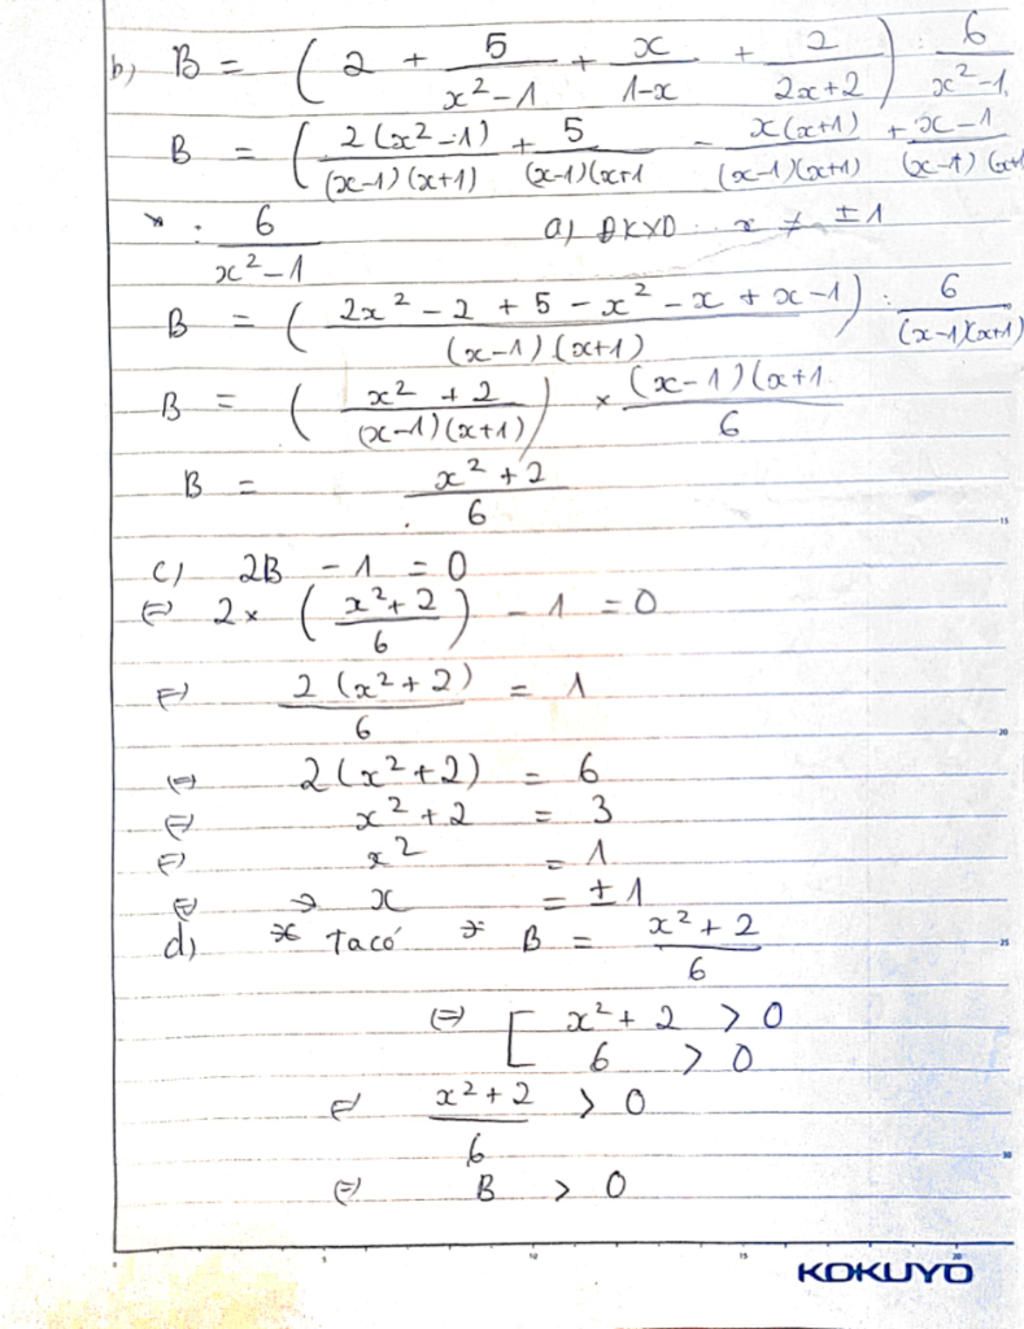 b) B = ( 2 + 5/(x² - 1) + x/(1-x) + 2/(2x+2) ) : 6/(x² - 1)
B = ( 2(x² - 1)/((x-1)(x+1)) + 5/((x-1)(x+1) - x(x+1)/((x-1)(x+1)) + x - 1/((x-1)(x+1
: 6/(x² - 1) a) ĐKXĐ : x ≠ ±1
B = ( (2x² - 2 + 5 - x² - x + x - 1)/((x-1)(x+1)) ) : 6/((x-1)(x+1))
B = ( (x² + 2)/((x-1)(x+1)) ) × (x-1)(x+1/6
B = (x² + 2)/6
c) 2B - 1 = 0
⇔ 2 × ( (x² + 2)/6 ) - 1 = 0
⇔ 2(x² + 2)/6 = 1
⇔ 2(x² + 2) = 6
⇔ x² + 2 = 3
⇔ x² = 1
⇔ → x = ±1
d) Ta có B = (x² + 2)/6
⇔ [ x² + 2 > 0
6 > 0
⇔ (x² + 2)/6 > 0
⇔ B > 0
15
20
25
30
5 10 15 20
KOKUYO